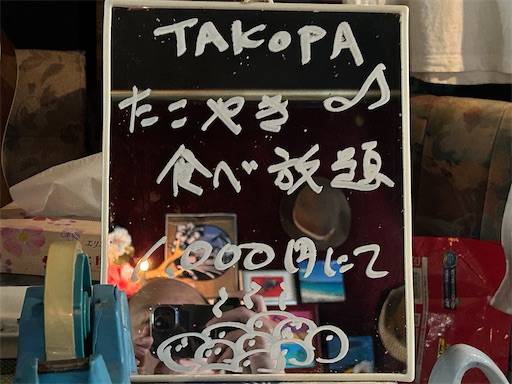 TAKOPA
たこやき♪
食べ放題
1000円にて